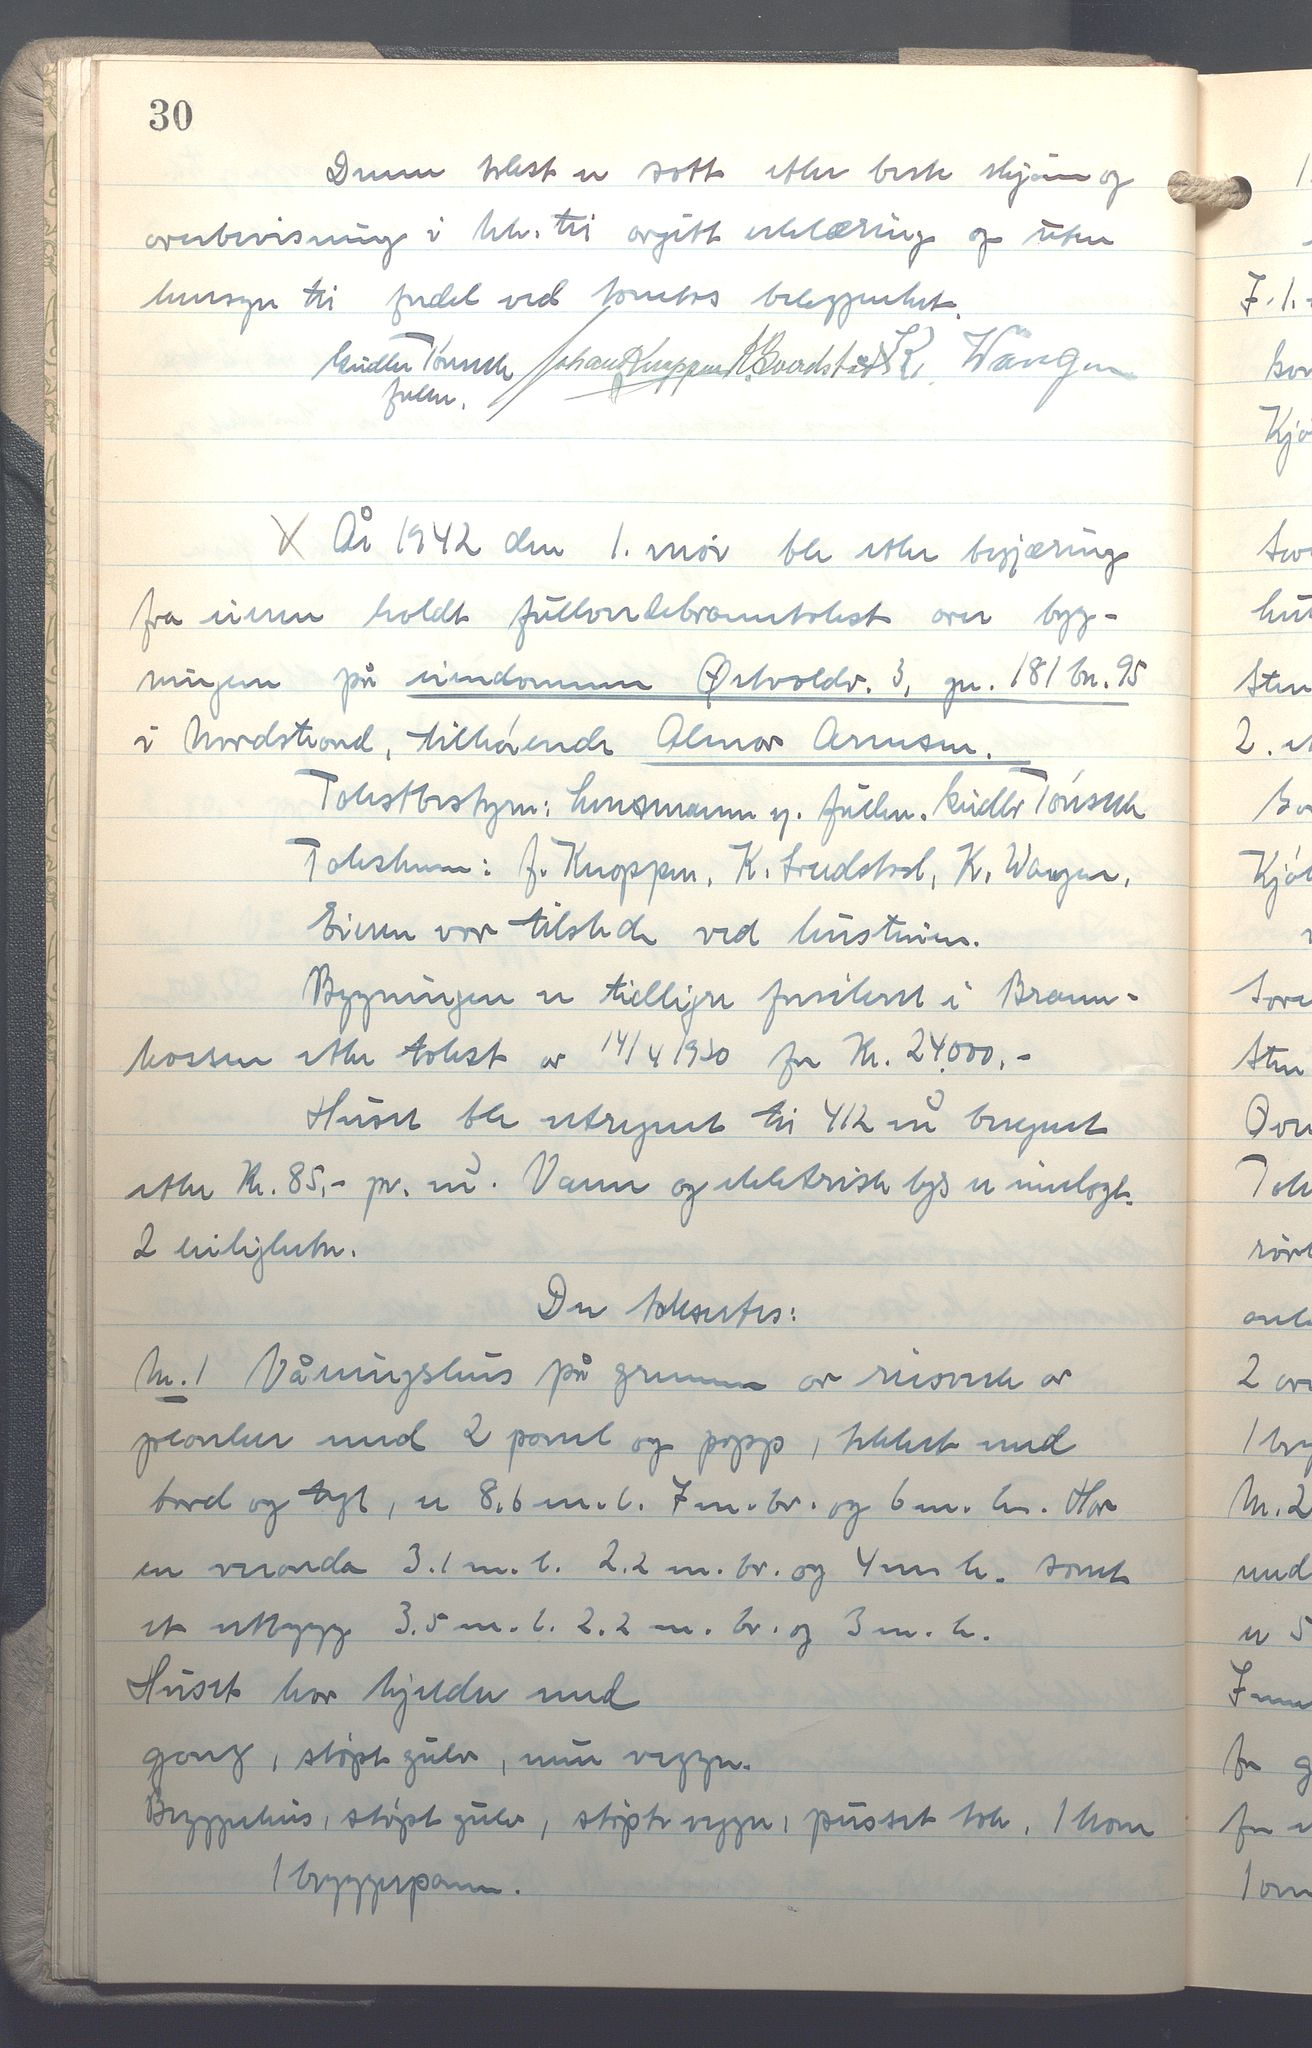 30
Denne takst er satt efter beste skjønn og
overbevisning i hht. til avgitt erklæring og uten
hensyn til fordel ved tomtens beliggenhet.
Johan Knoppen K. Svendstad K. Wangen
fullm.
X År 1942 den 1. mai ble efter begjæring
fra eieren holdt fullverdebranntakst over byg-
ningen på eiendommen Østvoldv. 3, gn. 181 bn. 95
i Nordstrand, tilhørende Almar Arnesen.
Takstbestyrer: Lensmannen v. fullm.
Takstmenn: J. Knoppen, K. Svendstad, K. Wangen.
Eieren var tilstede ved hustruen.
Bygningen er tidligere forsikret i Brann-
kassen efter takst av 14/4 1930 for Kr. 24.000.-
Huset ble utregnet til 412 m3 beregnet
efter Kr. 85,- pr. m3. Vann og elektrisk lys er innlagt.
2 leiligheter.
Der takseres:
Nr. 1 Våningshus på grunnmur av reisverk av
planker med 2 panel og papp, tekket med
bord og tegl, er 8.6 m. l. 7 m. br. og 6 m. h. Har
en veranda 3.1 m. l. 2.2 m. br. og 4 m h. samt
et utbygg 3.5 m. l. 2.2 m. br. og 3 m. h.
Huset har kjelder med
gang, støpt gulv, mur vegger.
Bryggerhus, støpt gulv, støpte vegger, pusset tak. 1 kom
1 bryggepanne.
1
7. 1.
Kjø
2.
Kjø
Sten
Ove
Tak
2
1
Nr. 2
med
er 5
for g
for
1